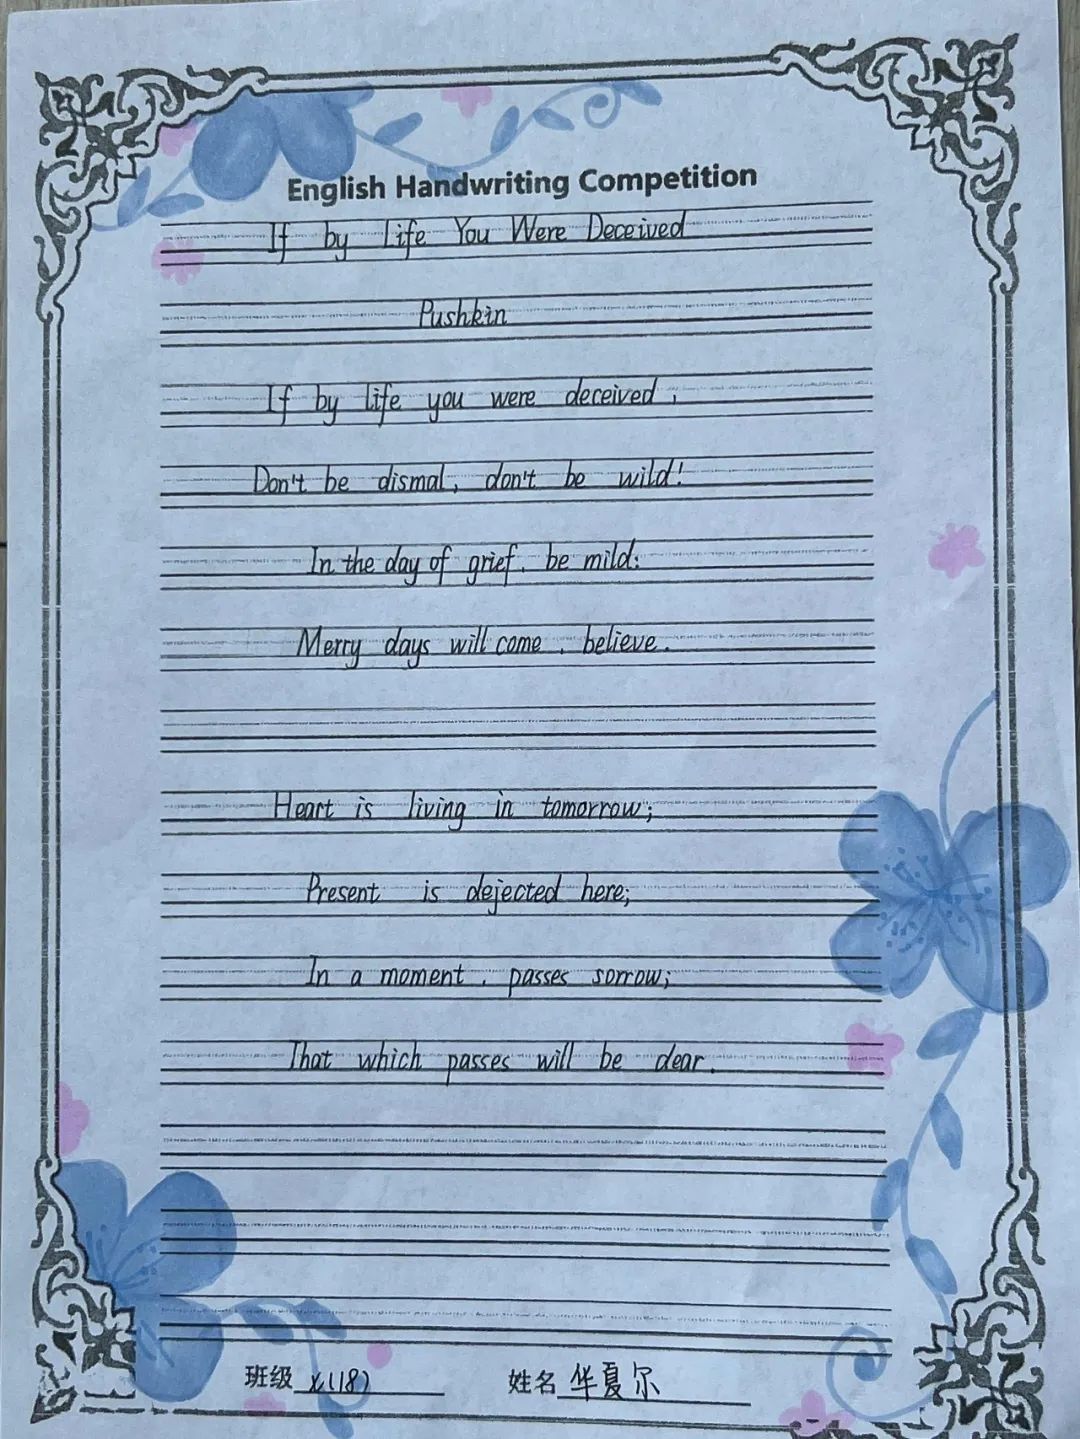 English Handwriting Competition
If by Life You Were Deceived
Pushkin
If by life you were deceived,
Don't be dismal, don't be wild!
In the day of grief, be mild:
Merry days will come, believe.
Heart is living in tomorrow;
Present is dejected here;
In a moment, passes sorrow;
That which passes will be dear.
班级 X(18) 姓名 华夏尔